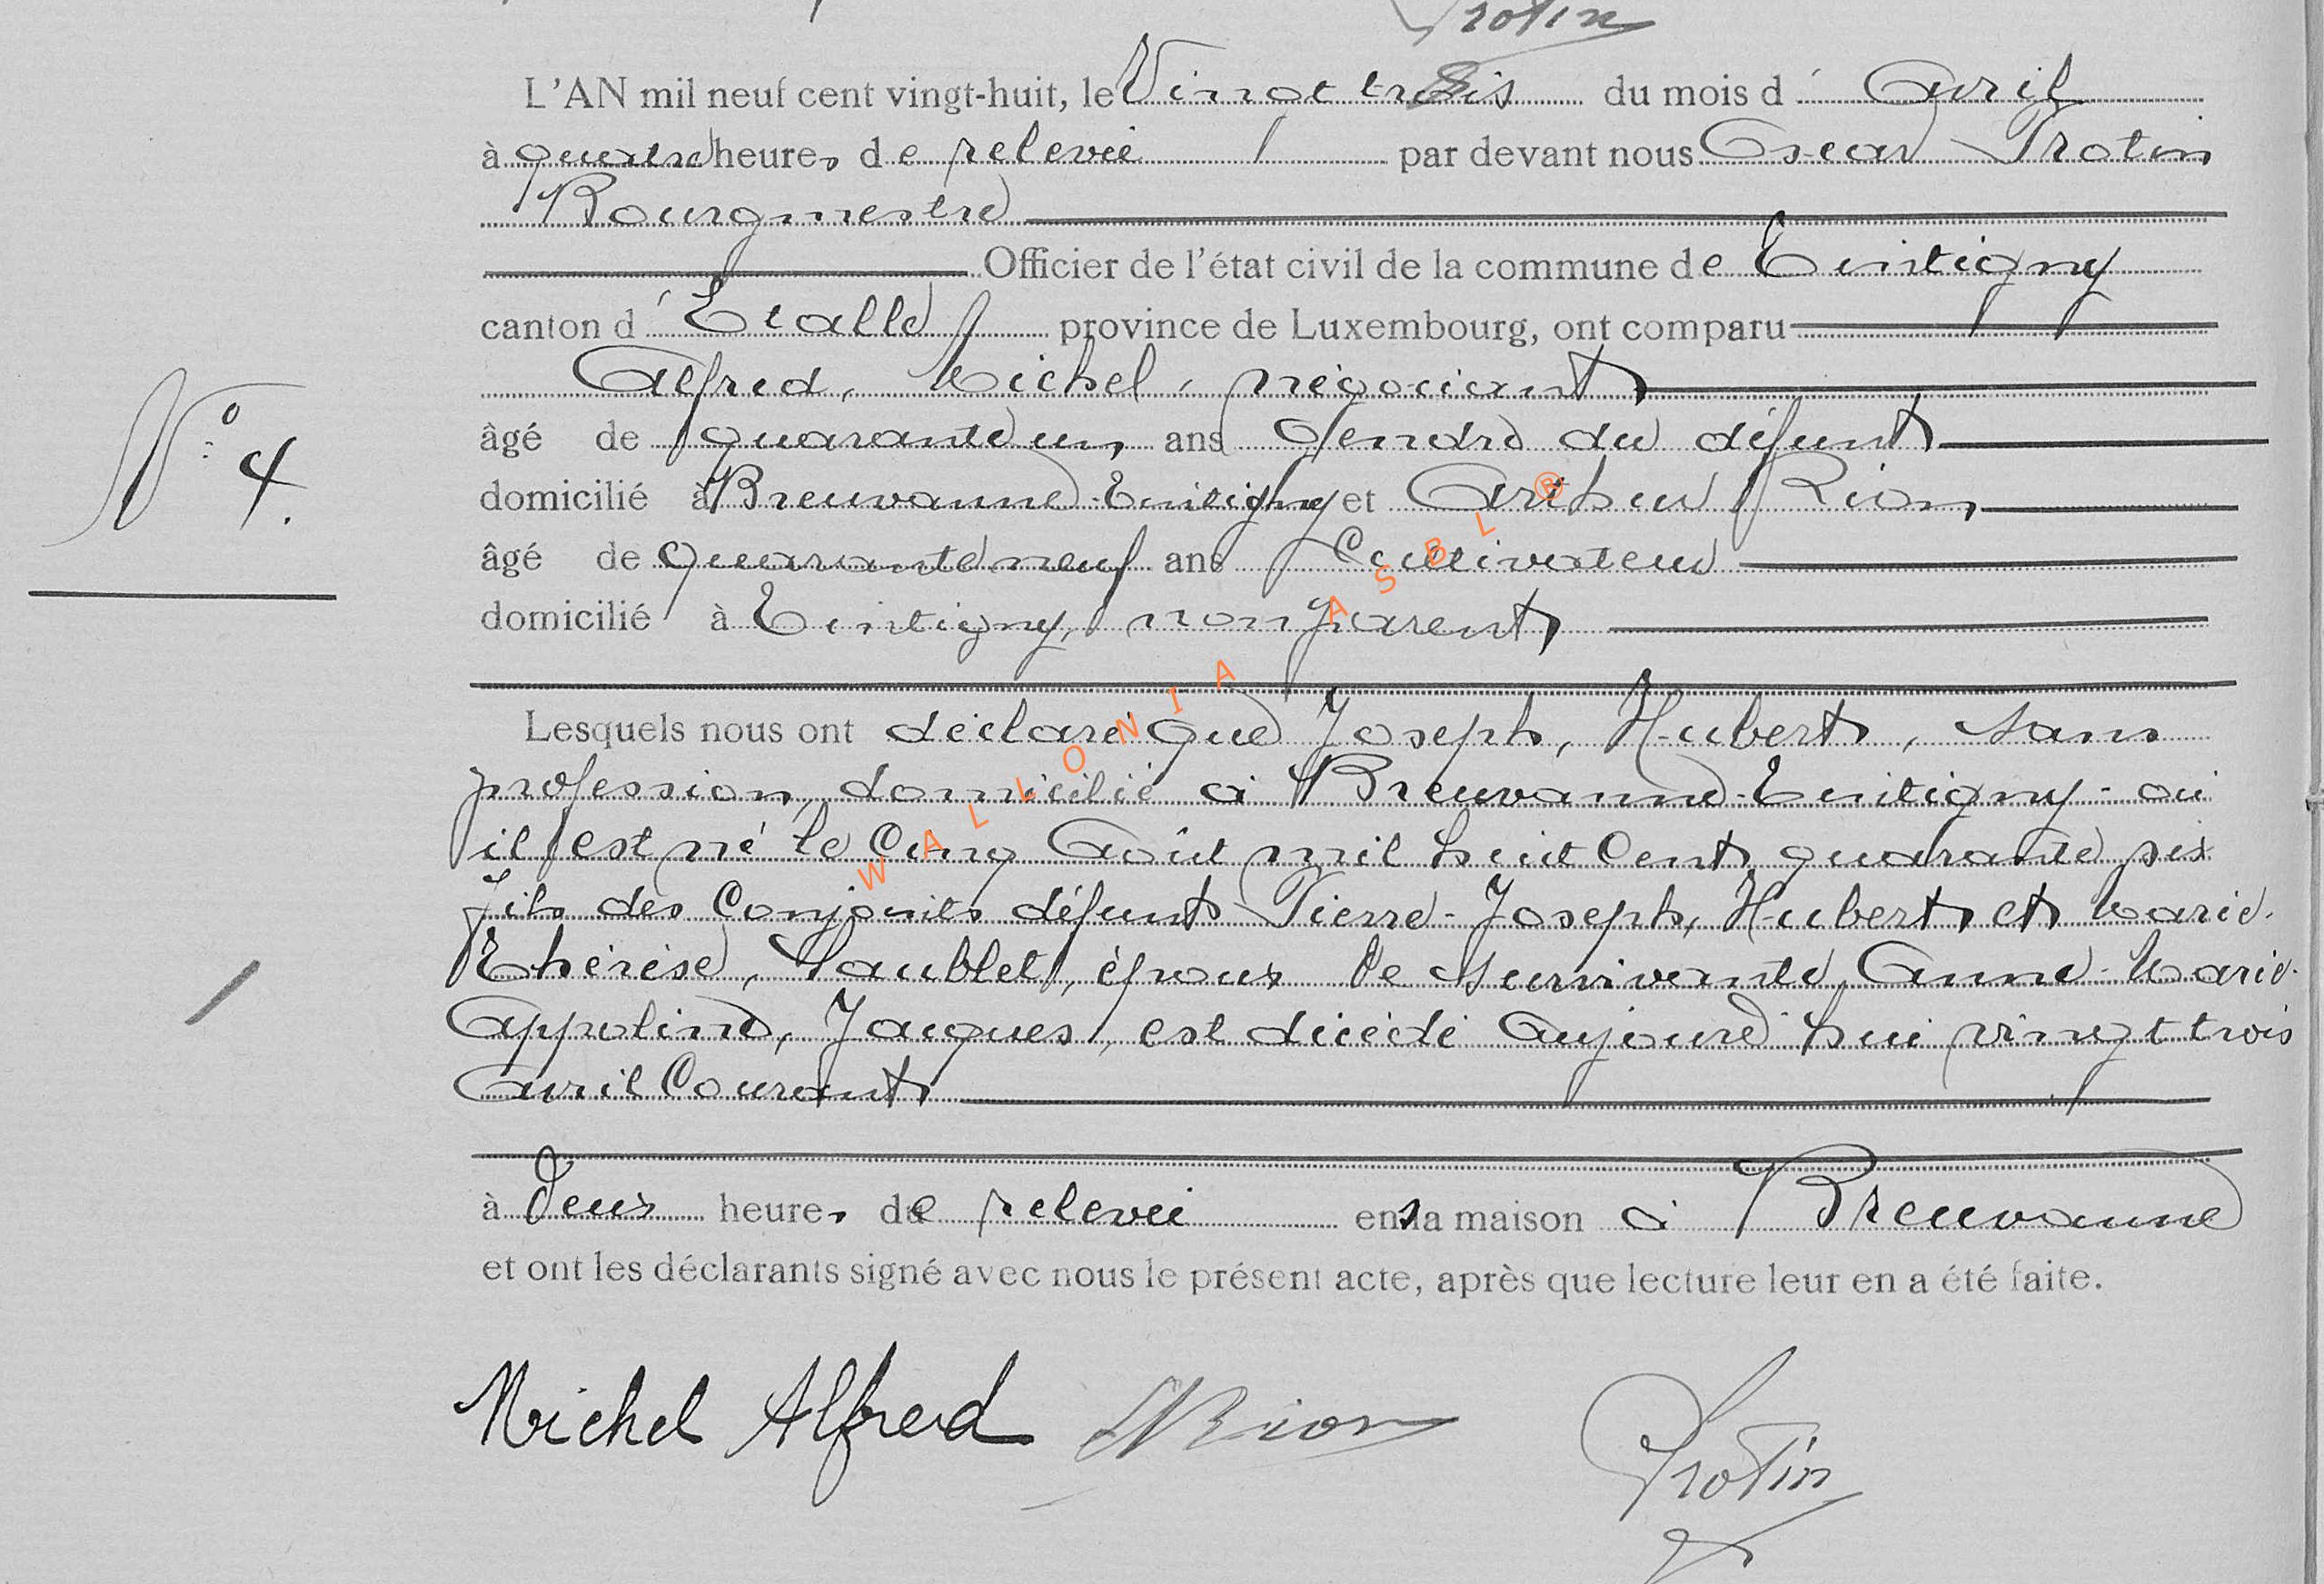 Protin
L'AN mil neuf cent vingt-huit, le Vingt trois du mois d' Avril
à quatre heures de relevée par devant nous Oscar Protin
Bourgmestre
Officier de l'état civil de la commune de Tintigny
canton d' Etalle province de Luxembourg, ont comparu
Alfred, Michel, négociant
âgé de quarante un ans Gendre du défunt
domicilié à Breuvanne-Tintigny et Arthur Rion
âgé de quarante neuf ans Cultivateur
N° 4.
domicilié à Tintigny, non parent
Lesquels nous ont déclaré que Joseph, Hubert, sans
profession, domicilié à Breuvanne-Tintigny - où
il est né le Cinq Août mil huit Cent quarante six
fils des Conjoints défunts Pierre-Joseph, Hubert et Marie-
Thérèse, Saublet, époux de survivante Anne-Marie-
Appoline, Jacques, est décédé aujourd'hui vingt trois
Avril Courant
à Deux heures de relevée en sa maison à Breuvanne
et ont les déclarants signé avec nous le présent acte, après que lecture leur en a été faite.
Michel Alfred ARion Protin
WALLONIA ASBL ®